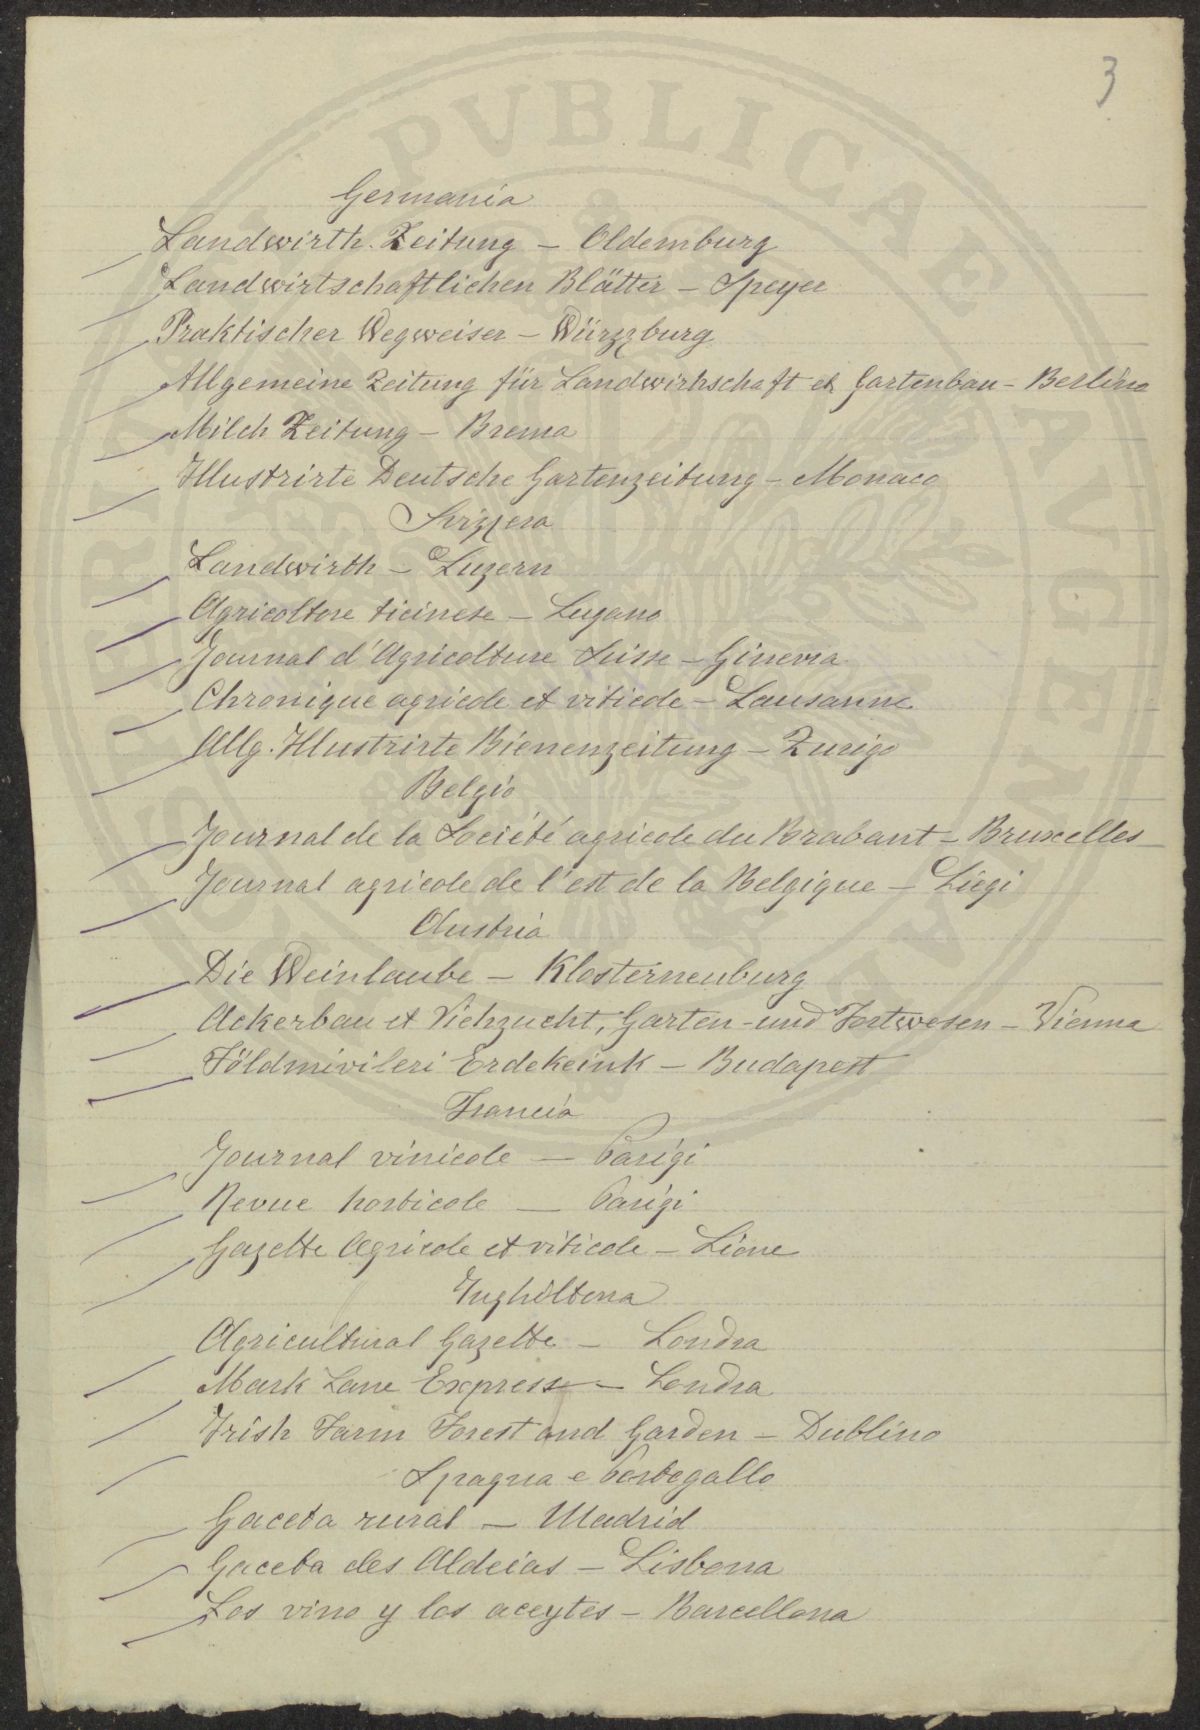 3
Germania
Landwirth. Zeitung – Oldemburg
Landwirtschaftlichen Blätter – Speyer
Praktischer Wegweiser – Würzzburg
Allgemeine Zeitung für Landwirhschaft et Gartenbau – Berlino
Milch Zeitung – Brema
Illustrirte Deutsche Gartenzeitung – Monaco
Svizzera
Landwirth – Luzern
Agricoltore ticinese – Lugano
Journal d'Agricolture Suisse – Ginevra
Chronique agricole et viticole – Lausanne
Allg. Illustrirte Bienenzeitung – Zurigo
Belgio
Journal de la Société agricole du Brabant – Bruxelles
Journal agricole de l'est de la Belgique – Liegi
Austria
Die Weinlaube – Klosterneuburg
Ackerbau et Viehzucht, Garten- und Fortwesen – Vienna
Földmivileri Erdekeink – Budapest
Francia
Journal vinicole — Parigi
Revue horticole — Parigi
Gazette Agricole et viticole – Lione
Inghilterra
Agricultural Gazette – Londra
Mark Lane Express – Londra
Irish Farm Forest and Garden – Dublino
Spagna e Portogallo
Gaceta rural – Madrid
Gaceta des Aldeias – Lisbona
Los vino y los aceytes – Barcellona